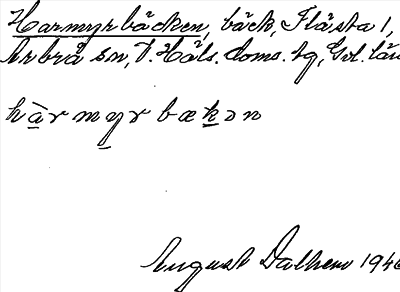 Harmyrbäcken, bäck, Flästa 1,
Arbrå sn, N. Häls. doms. tg, Gvl. län
hàrmyrbækən
August Dalhem 1946